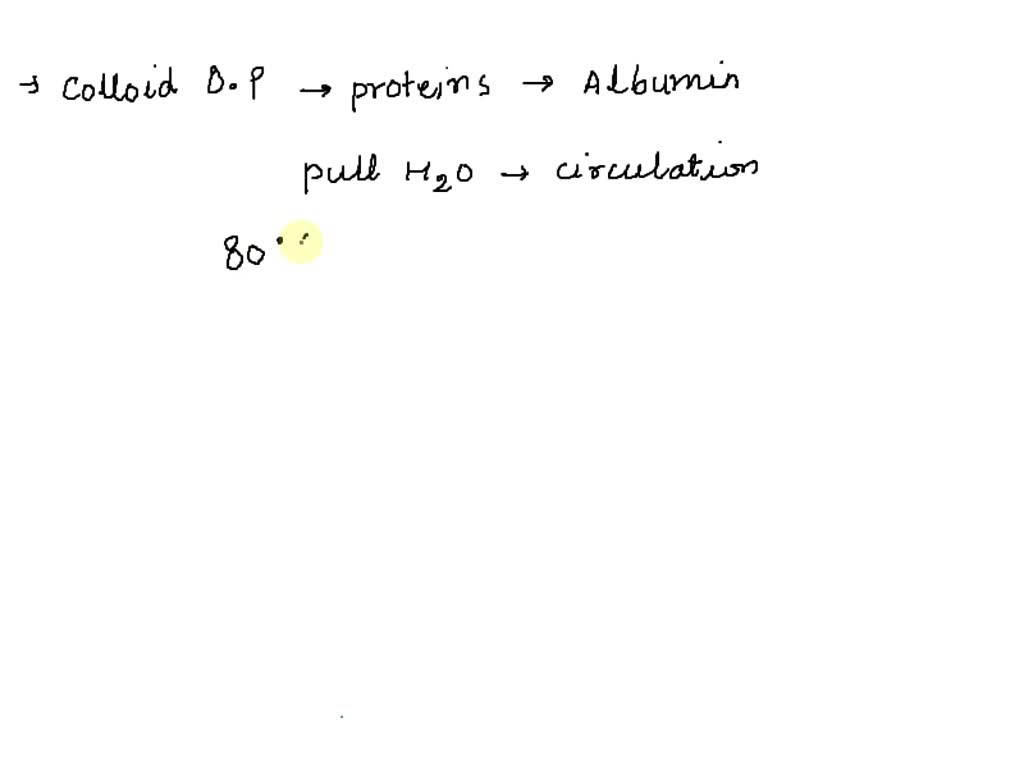 → Colloid O.P → proteins → Albumin
pull H2O → circulation
80